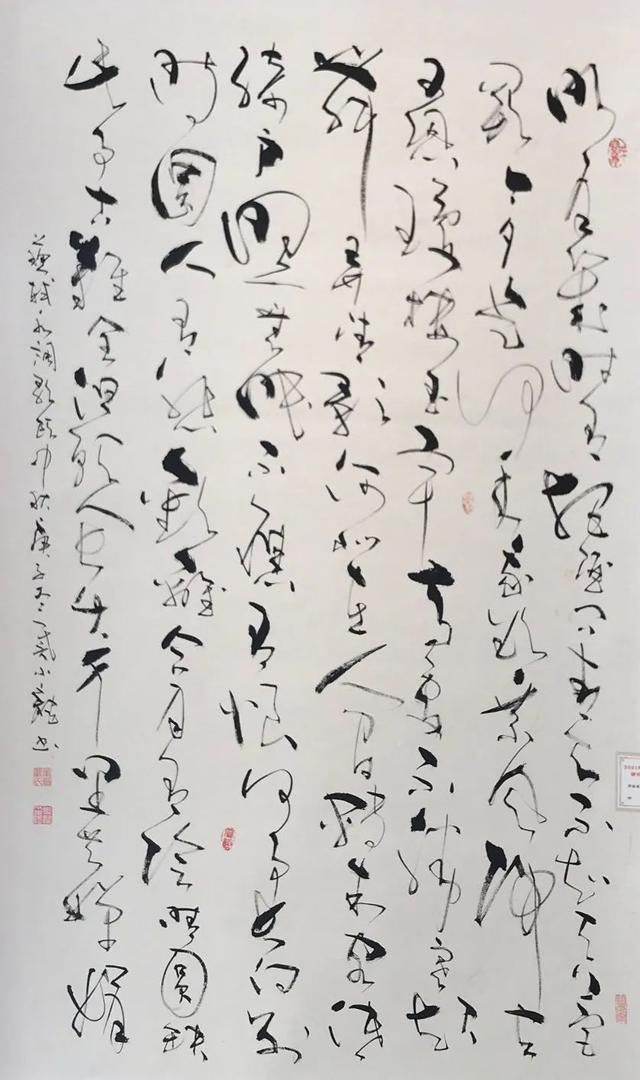 明月幾时有把酒问青天不知天上宫
阙今夕是何年我欲乘风归去
又恐琼楼玉宇高处不胜寒起
舞弄清影何似在人间转朱阁低
绮户照无眠不应有恨何事长向别
时圆人有悲欢離合月有阴晴圆缺
此事古難全但願人长久千里共婵娟
蘇軾水調歌頭中秋庚子冬武小龍书